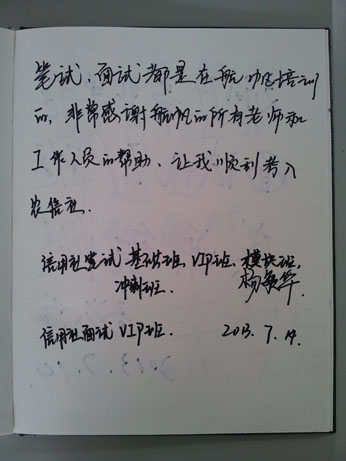 笔试、面试都是在航帆培训
的，非常感谢航帆的所有老师和
工作人员的帮助、让我顺利考入
农信社.
信用社笔试 基础班、VIP班、模块班,
冲刺班.
杨敏华.
信用社面试 VIP班.
2013.7.14.